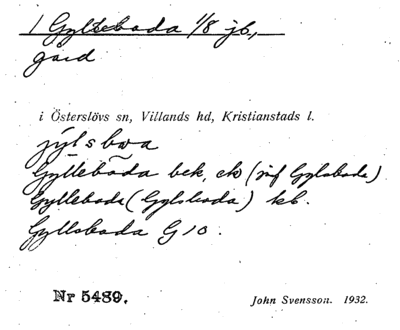 1 Gylleboda 1/8 jb,
gård
i Österslövs sn, Villands hd, Kristianstads l.
Gylleboda bek, ek (jnf Gylsboda)
Gyllebode (Gylsboda) kb.
Gyllsboda G 10.
Nr 5489.
John Svensson. 1932.